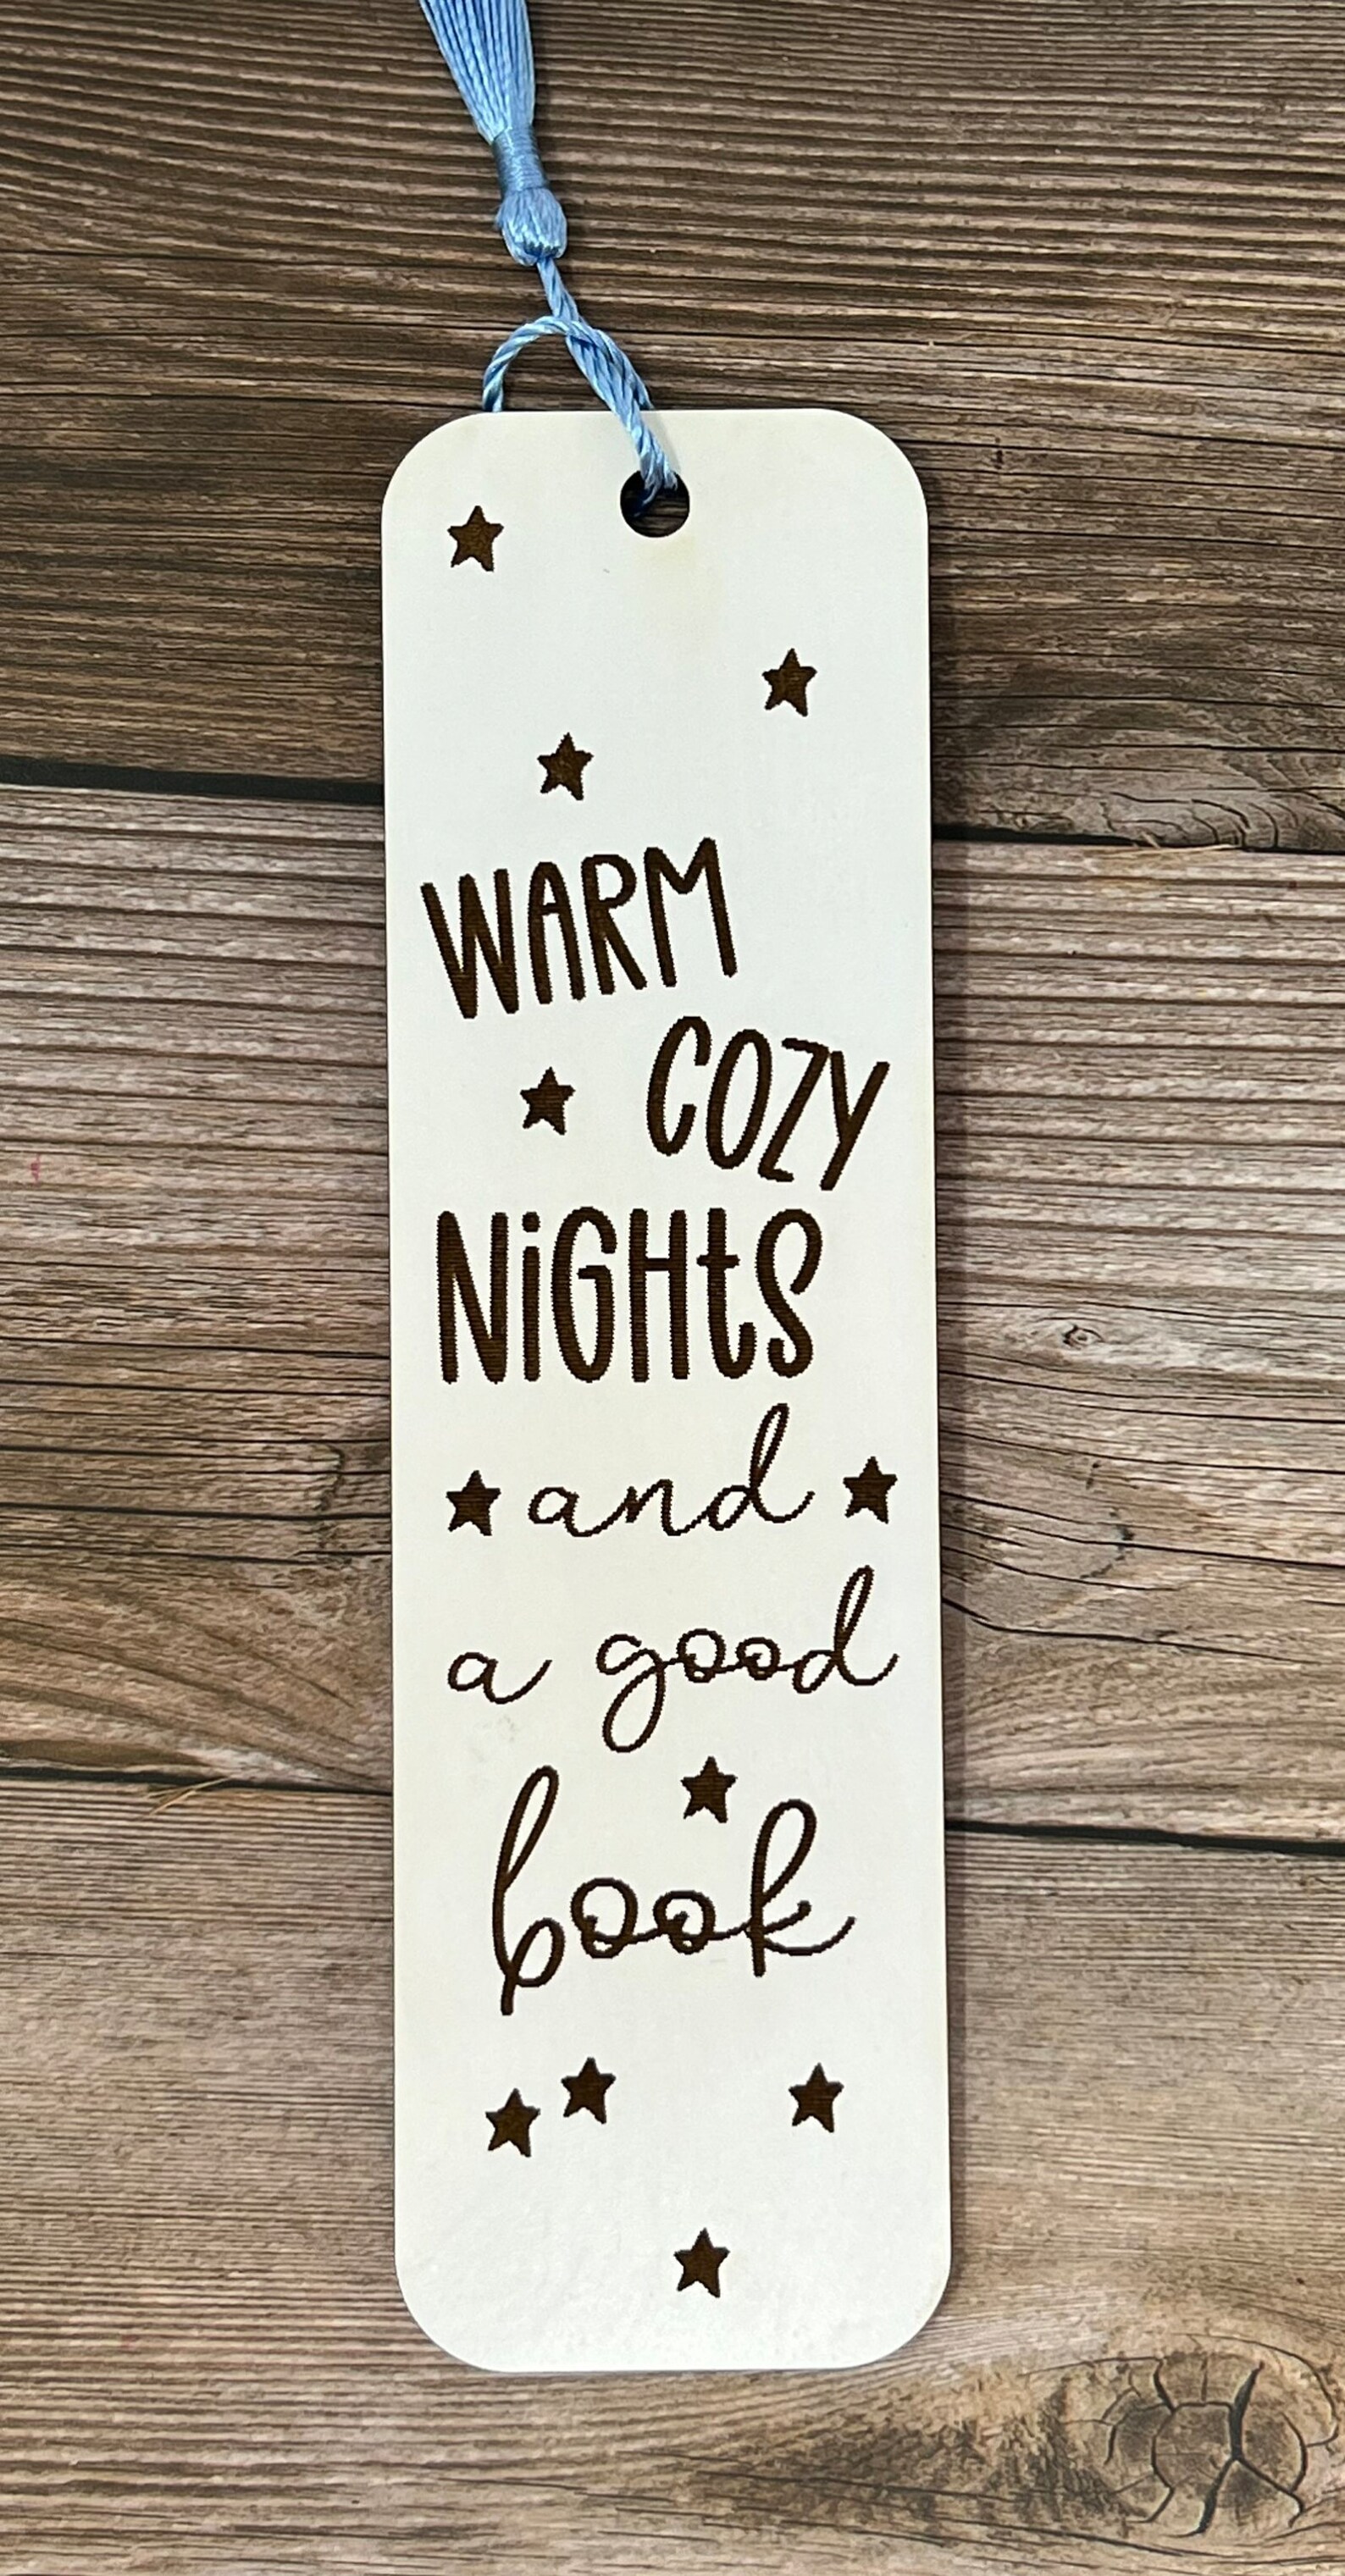 WARM
COZY
NiGHtS
and
a good
book